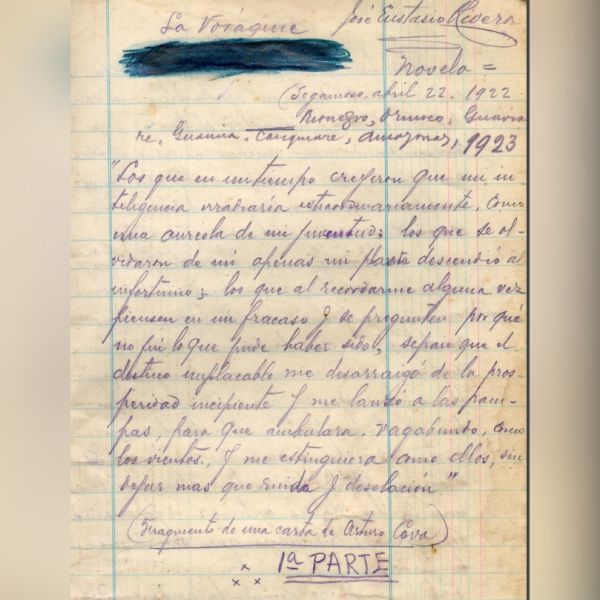 La Vorágine José Eustasio Rivera
Novela =
(Sogamoso, abril 22. 1922
Rionegro, Orinoco, Guavia
re, Guainía. Casiquiare, Amazonas, 1923
"Los que en un tiempo creyeron que mi in
teligencia irradiaría extraordinariamente, como
una aureola de mi juventud; los que se ol-
vidaron de mi apenas mi planta descendió al
infortunio; los que al recordarme alguna vez
piensen en un fracaso y se pregunten por qué
no fuí lo que pude haber sido, sepan que el
destino implacable me desarraigó de la pros-
peridad incipiente y me lanzó a las pam-
pas, para que ambulara. vagabundo, como
los vientos, y me extinguiera como ellos, sin
dejar mas que ruido y desolación"
(Fragmento de una carta de Arturo Cova)
1ª PARTE